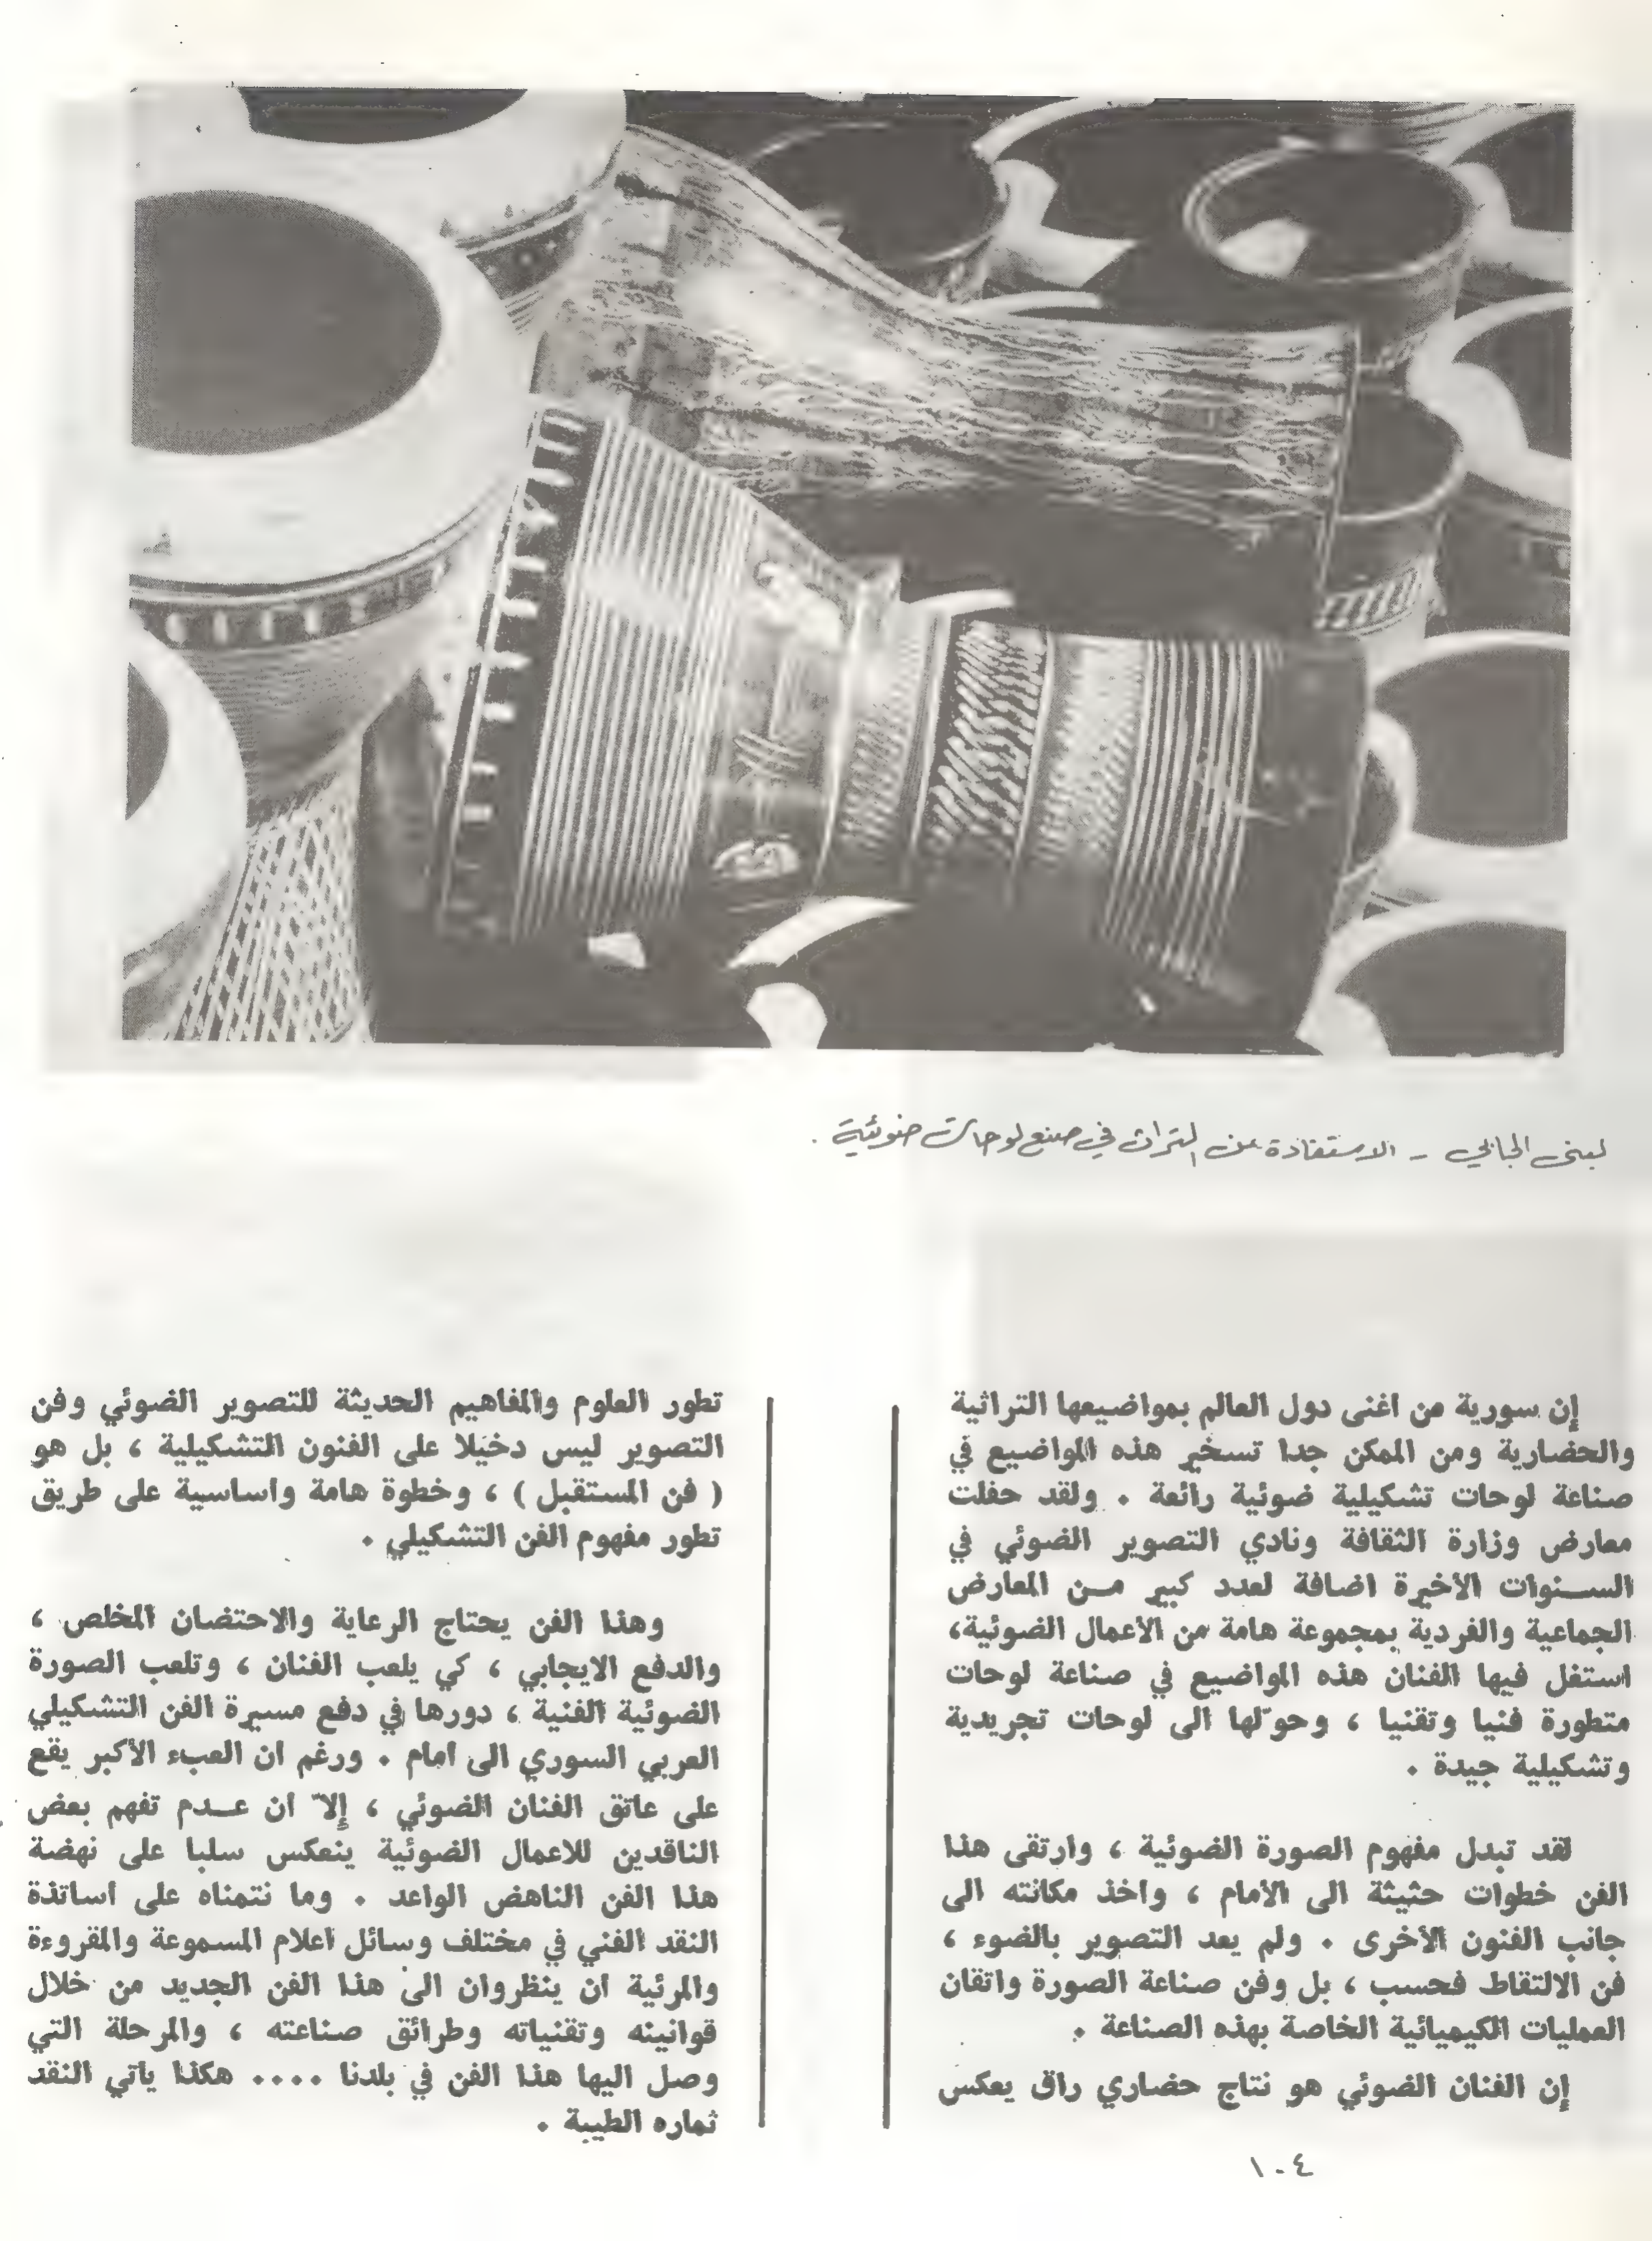 لبنى الجابي - الاستفادة من التراث في صنع لوحات ضوئية .
إن سورية من اغنى دول العالم بمواضيعها التراثية
والحضارية ومن الممكن جدا تسخير هذه المواضيع في
صناعة لوحات تشكيلية ضوئية رائعة . ولقد حفلت
معارض وزارة الثقافة ونادي التصوير الضوئي في
الســنوات الأخيرة اضافة لعدد كبير مــن المعارض
الجماعية والفردية بمجموعة هامة من الأعمال الضوئية،
استغل فيها الفنان هذه المواضيع في صناعة لوحات
متطورة فنيا وتقنيا ، وحوّلها الى لوحات تجريدية
وتشكيلية جيدة .
لقد تبدل مفهوم الصورة الضوئية ، وارتقى هذا
الفن خطوات حثيثة الى الأمام ، واخذ مكانته الى
جانب الفنون الأخرى . ولم يعد التصوير بالضوء ،
فن الالتقاط فحسب ، بل وفن صناعة الصورة واتقان
العمليات الكيميائية الخاصة بهذه الصناعة .
إن الفنان الضوئي هو نتاج حضاري راق يعكس
تطور العلوم والمفاهيم الحديثة للتصوير الضوئي وفن
التصوير ليس دخيلا على الفنون التشكيلية ، بل هو
( فن المستقبل ) ، وخطوة هامة واساسية على طريق
تطور مفهوم الفن التشكيلي .
وهذا الفن يحتاج الرعاية والاحتضان المخلص ،
والدفع الايجابي ، كي يلعب الفنان ، وتلعب الصورة
الضوئية الفنية ، دورها في دفع مسيرة الفن التشكيلي
العربي السوري الى امام . ورغم ان العبء الأكبر يقع
على عاتق الفنان الضوئي ، إلاّ ان عــدم تفهم بعض
الناقدين للاعمال الضوئية ينعكس سلبا على نهضة
هذا الفن الناهض الواعد . وما نتمناه على اساتذة
النقد الفني في مختلف وسائل اعلام المسموعة والمقروءة
والمرئية ان ينظروان الى هذا الفن الجديد من خلال
قوانينه وتقنياته وطرائق صناعته ، والمرحلة التي
وصل اليها هذا الفن في بلدنا .... هكذا ياتي النقد
ثماره الطيبة .
١٠٤